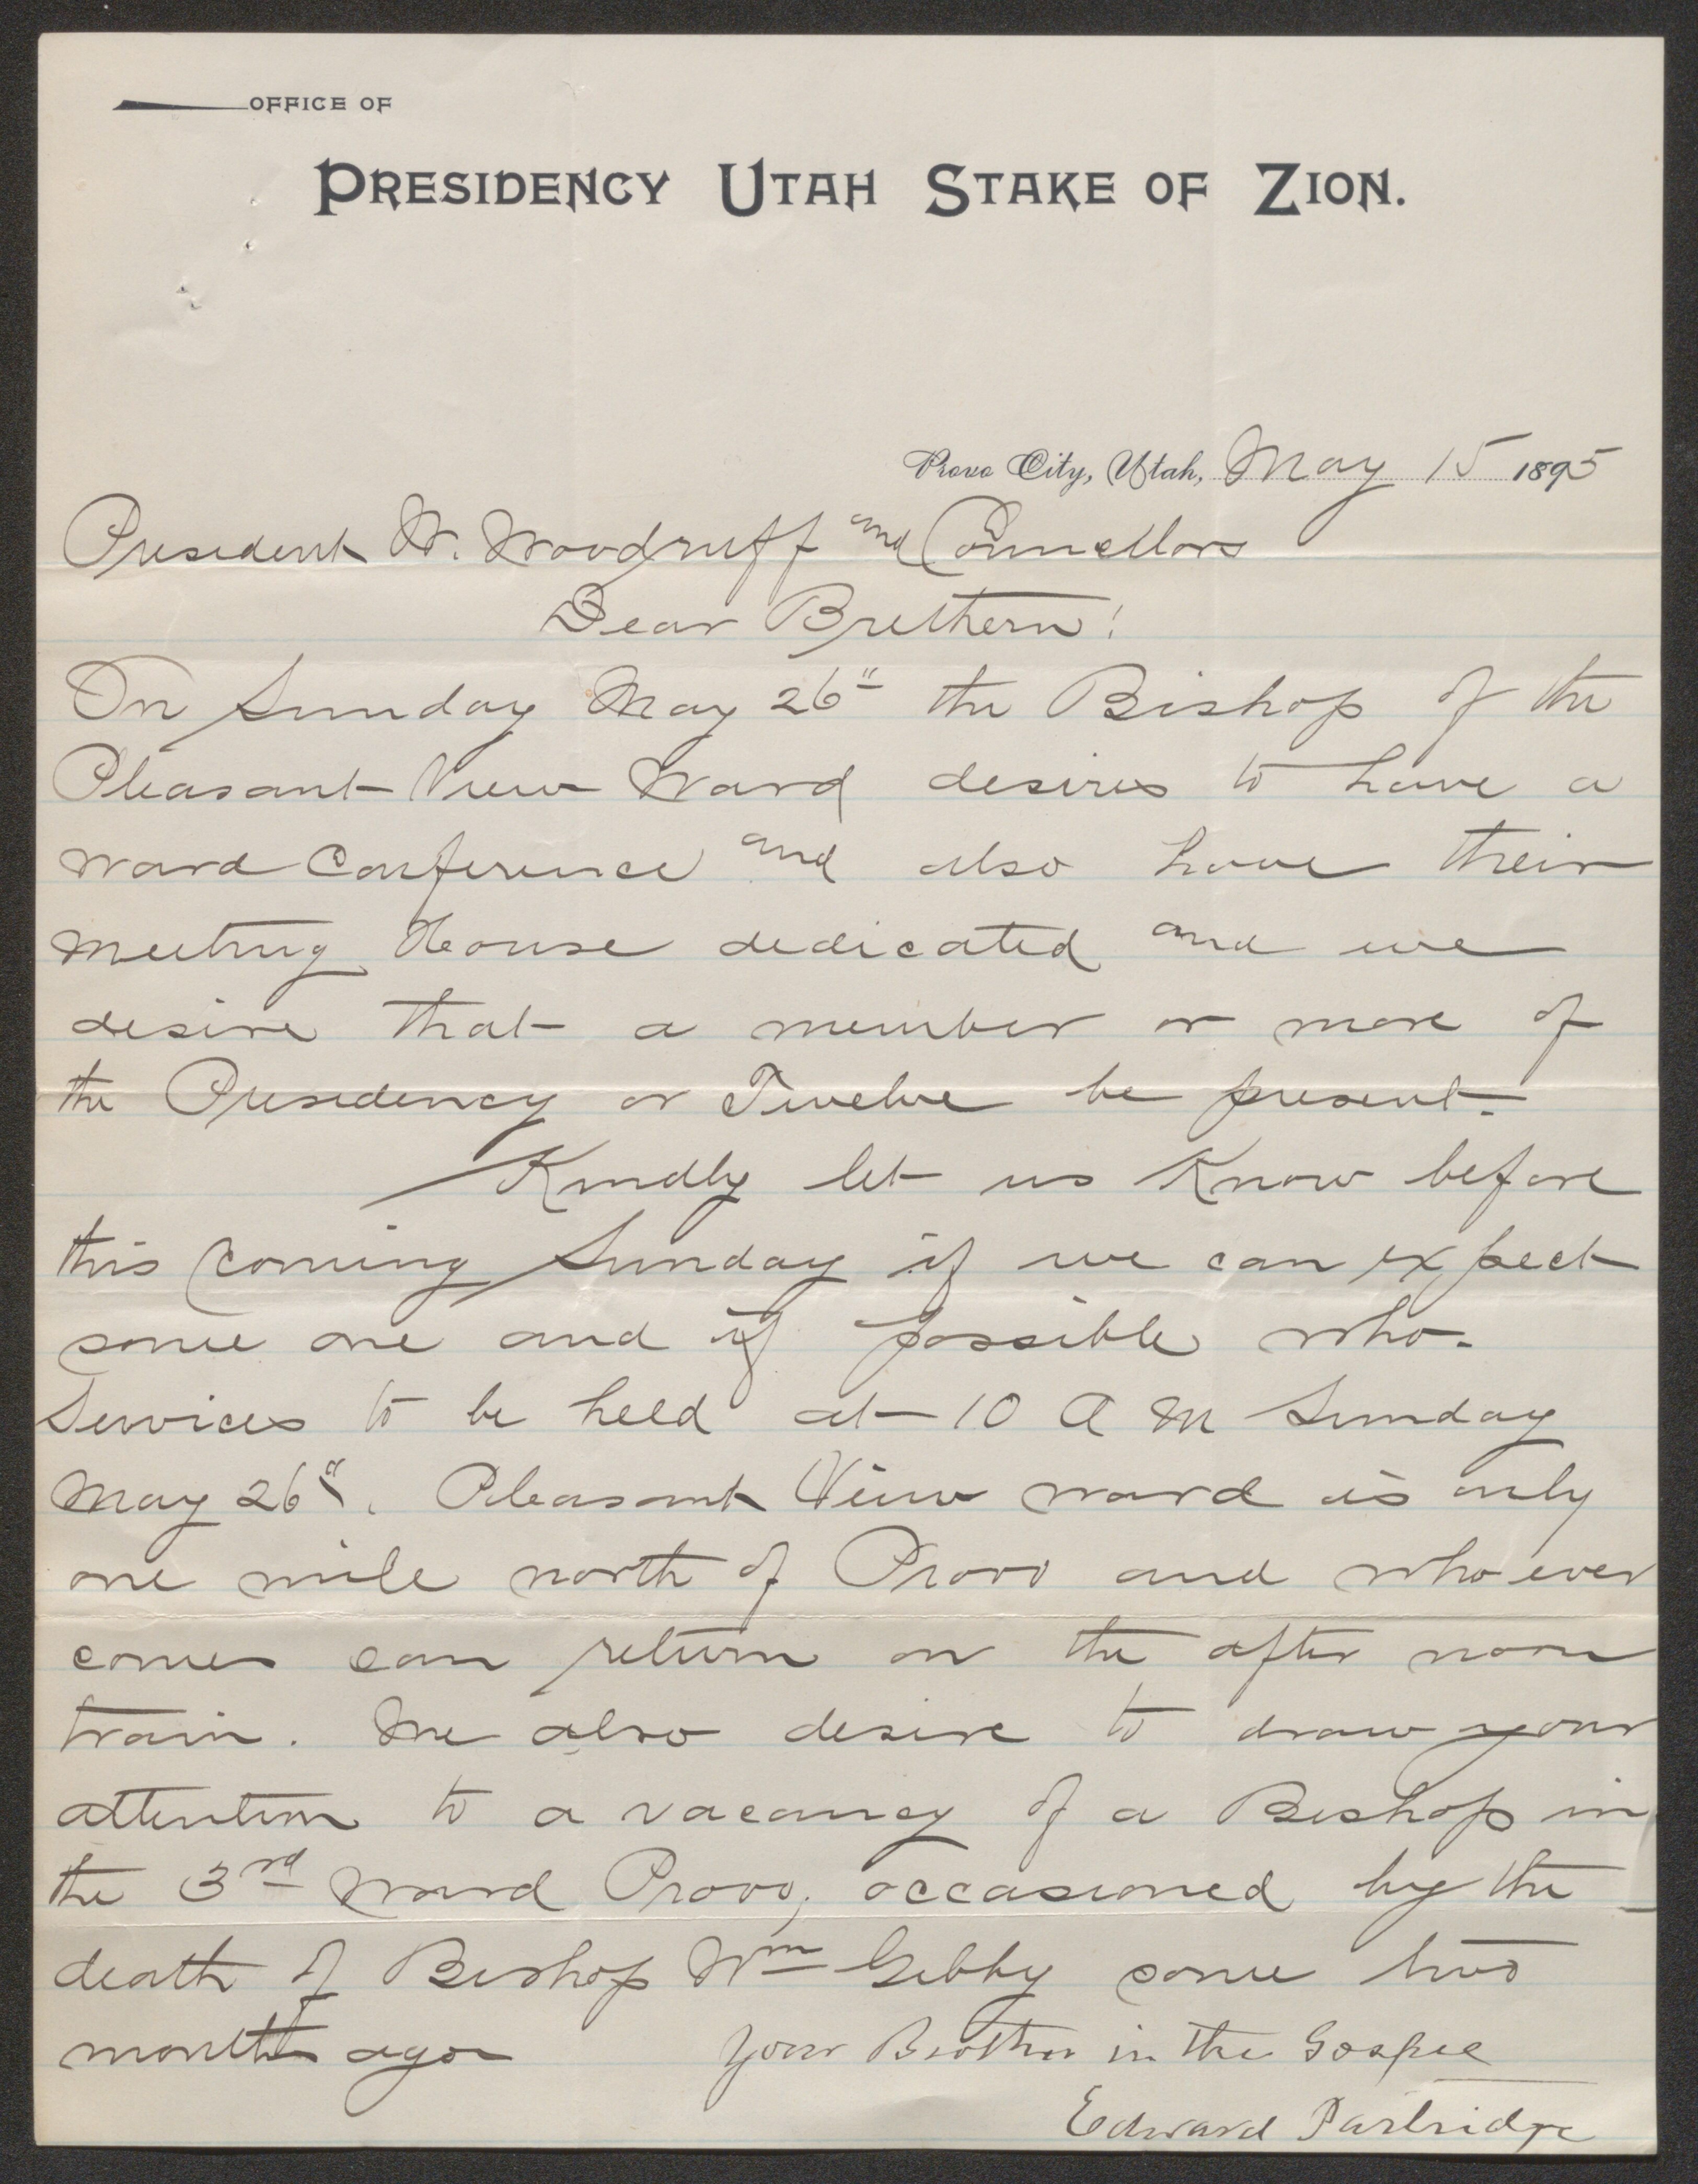 OFFICE OF
PRESIDENCY UTAH STAKE OF ZION.
Provo City, Utah, May 15 1895
President W. Woodruff and Councellors
Dear Brethern!
On Sunday May 26" the Bishop of the
Pleasant View Ward desires to have a
ward Conference and also have their
meeting House dedicated and we
desire that a member or more of
the Presidency or Twelve be present.
Kindly let us Know before
this coming Sunday if we can expect
some one and if possible who.
Services to be held at 10 A M Sunday
May 26". Pleasant View ward is only
one mile north of Provo and who ever
comes can return on the after noon
train. We also desire to draw your
attention to a vacancy of a Bishop in
the 3rd ward Provo, occasioned by the
death of Bishop Wm Gibby some two
months ago your Brother in the Gospel
Edward Partridge